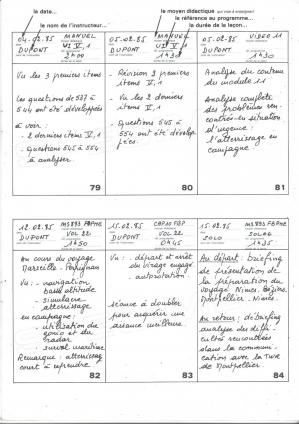 la date...
le nom de l'instructeur...
le moyen didactique que vise d'enseignant
la référence au programme...
la durée de la leçon...
04.02.85 MANUEL
DUPONT VI V.1
2h00
Vu les 3 premiers items
Les questions de 537 à
544 ont été développées
à voir :
- 2 derniers items V.1
- Questions 545 à 554
à analyser.
79
05.02.85 MANUEL
DUPONT VI V.1
1h30
- Révision 3 premiers
items V.1
- Vu les 2 derniers
items V.1
- Questions 545 à
554 ont été dévelop-
pées.
80
05.02.85 VIDEO 11
DUPONT
1h30
Analyse du contenu
du module 11
Analyse complète
des problèmes ren-
contrés en situation
d'urgence :
l'atterrissage en
campagne
81
12.02.85 MS893 FBPHE
DUPONT VOL 22
1h50
Au cours du voyage
Marseille - Perpignan
Vu : - navigation
basse altitude
simulacre
atterrissage
en campagne :
- utilisation du
gonio et du
radar
- survol maritime
Remarque : atterrissage
court à reprendre
82
15.02.85
DUPONT VOL 22
0h45
Vu : - départ et arrêt
du virage engagé
- autorotation
séance à doubler
pour acquérir une
aisance meilleure.
83
15.02.85 MS893 FBPHE
SOLO
1h35
Au départ : briefing
de présentation de
la préparation du
voyage Nîmes. Béziers.
Montpellier. Nîmes.
Au retour : debriefing
analyse des diffi-
cultés rencontrées
dans la communi-
cation avec la TWR
de Montpellier
84